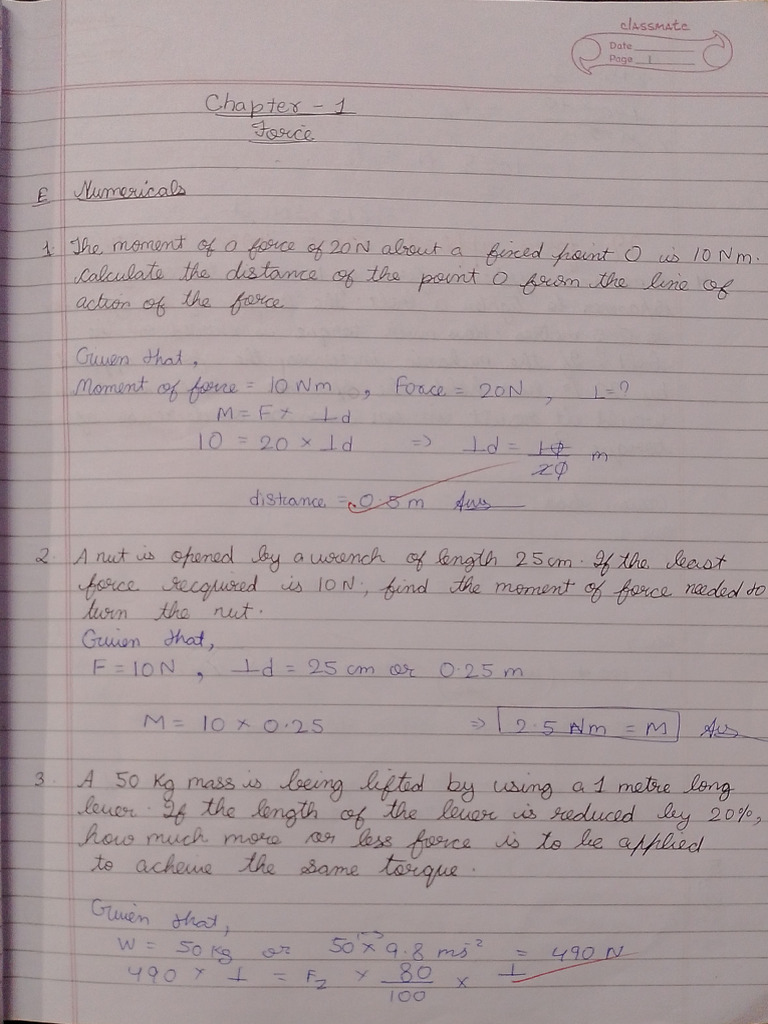 classmate
Date
Page 1
Chapter - 1
Force
E Numericals
1. The moment of a force of 20N about a fixed point O is 10 Nm.
calculate the distance of the point O from the line of
action of the force
Given that,
Moment of force = 10 Nm , Force = 20N , ⊥=?
M = F × ⊥d
10 = 20 × ⊥d => ⊥d = 10/20 m
distance = 0.5 m Ans
2. A nut is opened by a wrench of length 25 cm. If the least
force recquired is 10N, find the moment of force needed to
turn the nut.
Given that,
F = 10N , ⊥d = 25 cm or 0.25 m
M = 10 × 0.25 => 2.5 Nm = M Ans
3. A 50 Kg mass is being lifted by using a 1 metre long
lever. If the length of the lever is reduced by 20%,
how much more or less force is to be applied
to acheive the same torque.
Given that,
W = 50 kg or 50 × 9.8 ms² = 490 N
490 × 1 = F₂ × 80/100 × 1